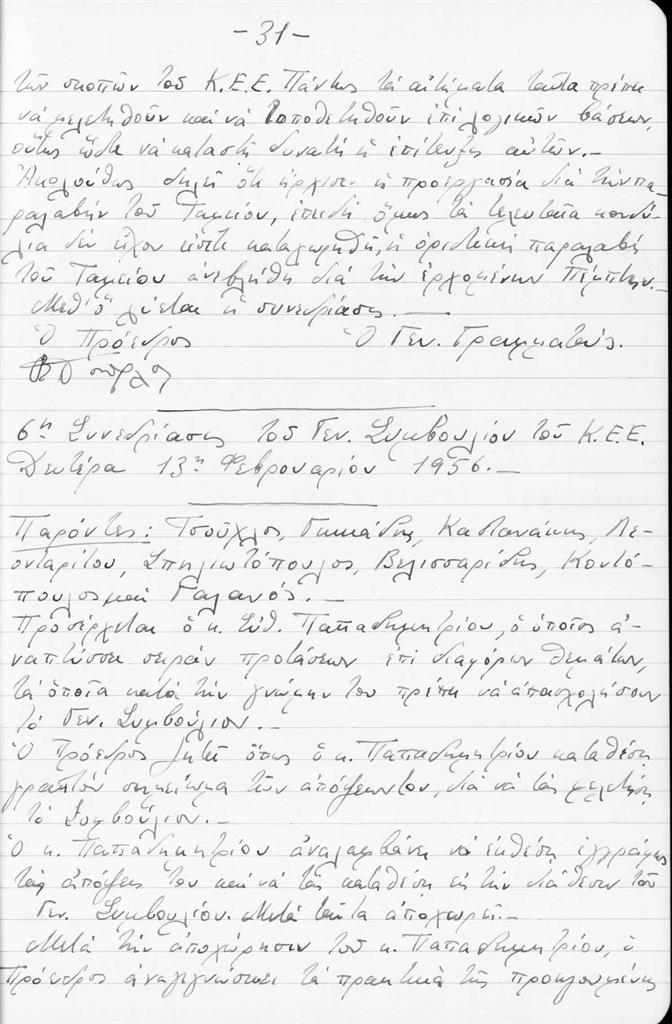 -31-
τῶν σκοπῶν τοῦ Κ.Ε.Ε. Πάντως τά αἰτήματα ταῦτα πρέπει
νά μελετηθοῦν καί νά τοποθετηθοῦν ἐπί λογικῶν βάσεων,
οὕτως ὥστε νά καταστῇ δυνατή ἡ ἐπίτευξις αὐτῶν.—
Ἀκολούθως δηλοῖ ὅτι ἤρχισεν ἡ προεργασία διά τήν πα-
ραλαβήν τοῦ Ταμείου, ἐπειδή ὅμως τά τελευταῖα κονδύ-
λια δέν εἶχον εἰσέτι καταχωρηθῆ, ἡ ὁριστική παραλαβή
τοῦ Ταμείου ἀνεβλήθη διά τήν ἐρχομένην Πέμπτην.—
Μεθ' ὅ λύεται ἡ συνεδρίασις.—
Ὁ Πρόεδρος Ὁ Γεν. Γραμματεύς.
6η Συνεδρίασις τοῦ Γεν. Συμβουλίου τοῦ Κ.Ε.Ε.
Δευτέρα 13η Φεβρουαρίου 1956.—
Παρόντες: Τσοῦχλος, Καστανάκης, Λε-
ονταρίτου, Σπηλιωτόπουλος, Βελισσαρίδης, Κοντό-
πουλος καί Γαλανός.—
Προσέρχεται ὁ κ. Εὐθ. Παπαδημητρίου, ὁ ὁποῖος ἀ-
ναπτύσσει σειράν προτάσεων ἐπί διαφόρων θεμάτων,
τά ὁποῖα κατά τήν γνώμην του πρέπει νά ἀπασχολήσουν
τό Γεν. Συμβούλιον.—
Ὁ Πρόεδρος ζητεῖ ὅπως ὁ κ. Παπαδημητρίου καταθέσῃ
γραπτόν σημείωμα τῶν ἀπόψεών του, διά νά τάς μελετήσῃ
τό Συμβούλιον.—
Ὁ κ. Παπαδημητρίου ἀναλαμβάνει νά ἐκθέσῃ ἐγγράφως
τάς ἀπόψεις του καί νά τάς καταθέσῃ εἰς τήν διάθεσιν τοῦ
Γεν. Συμβουλίου. Μετά ταῦτα ἀποχωρεῖ.—
Μετά τήν ἀποχώρησιν τοῦ κ. Παπαδημητρίου, ὁ
Πρόεδρος ἀναγιγνώσκει τά πρακτικά τῆς προηγουμένης